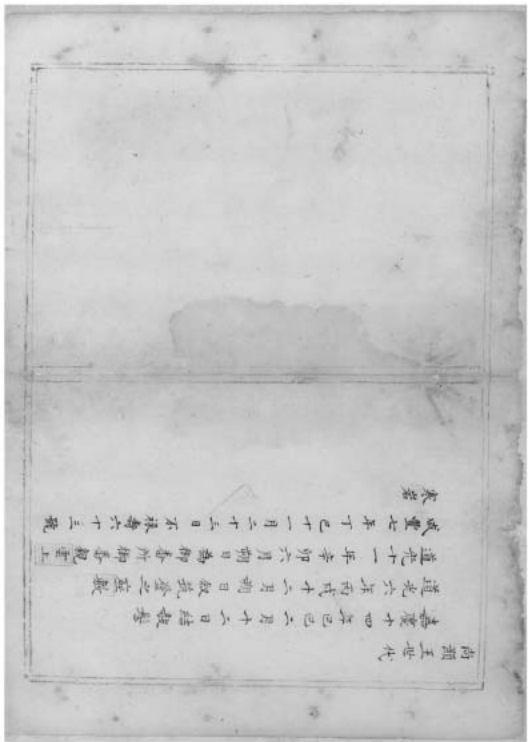 尚灝王世代
嘉慶十四年己巳二月十二日結敧髻
道光六年丙戌十二月朔日敘筑登之座敷
道光十一年辛卯六月朔日為御番所御番親雲上
咸豐七年丁巳十一月二十三日不祿壽六十三號
寒岩